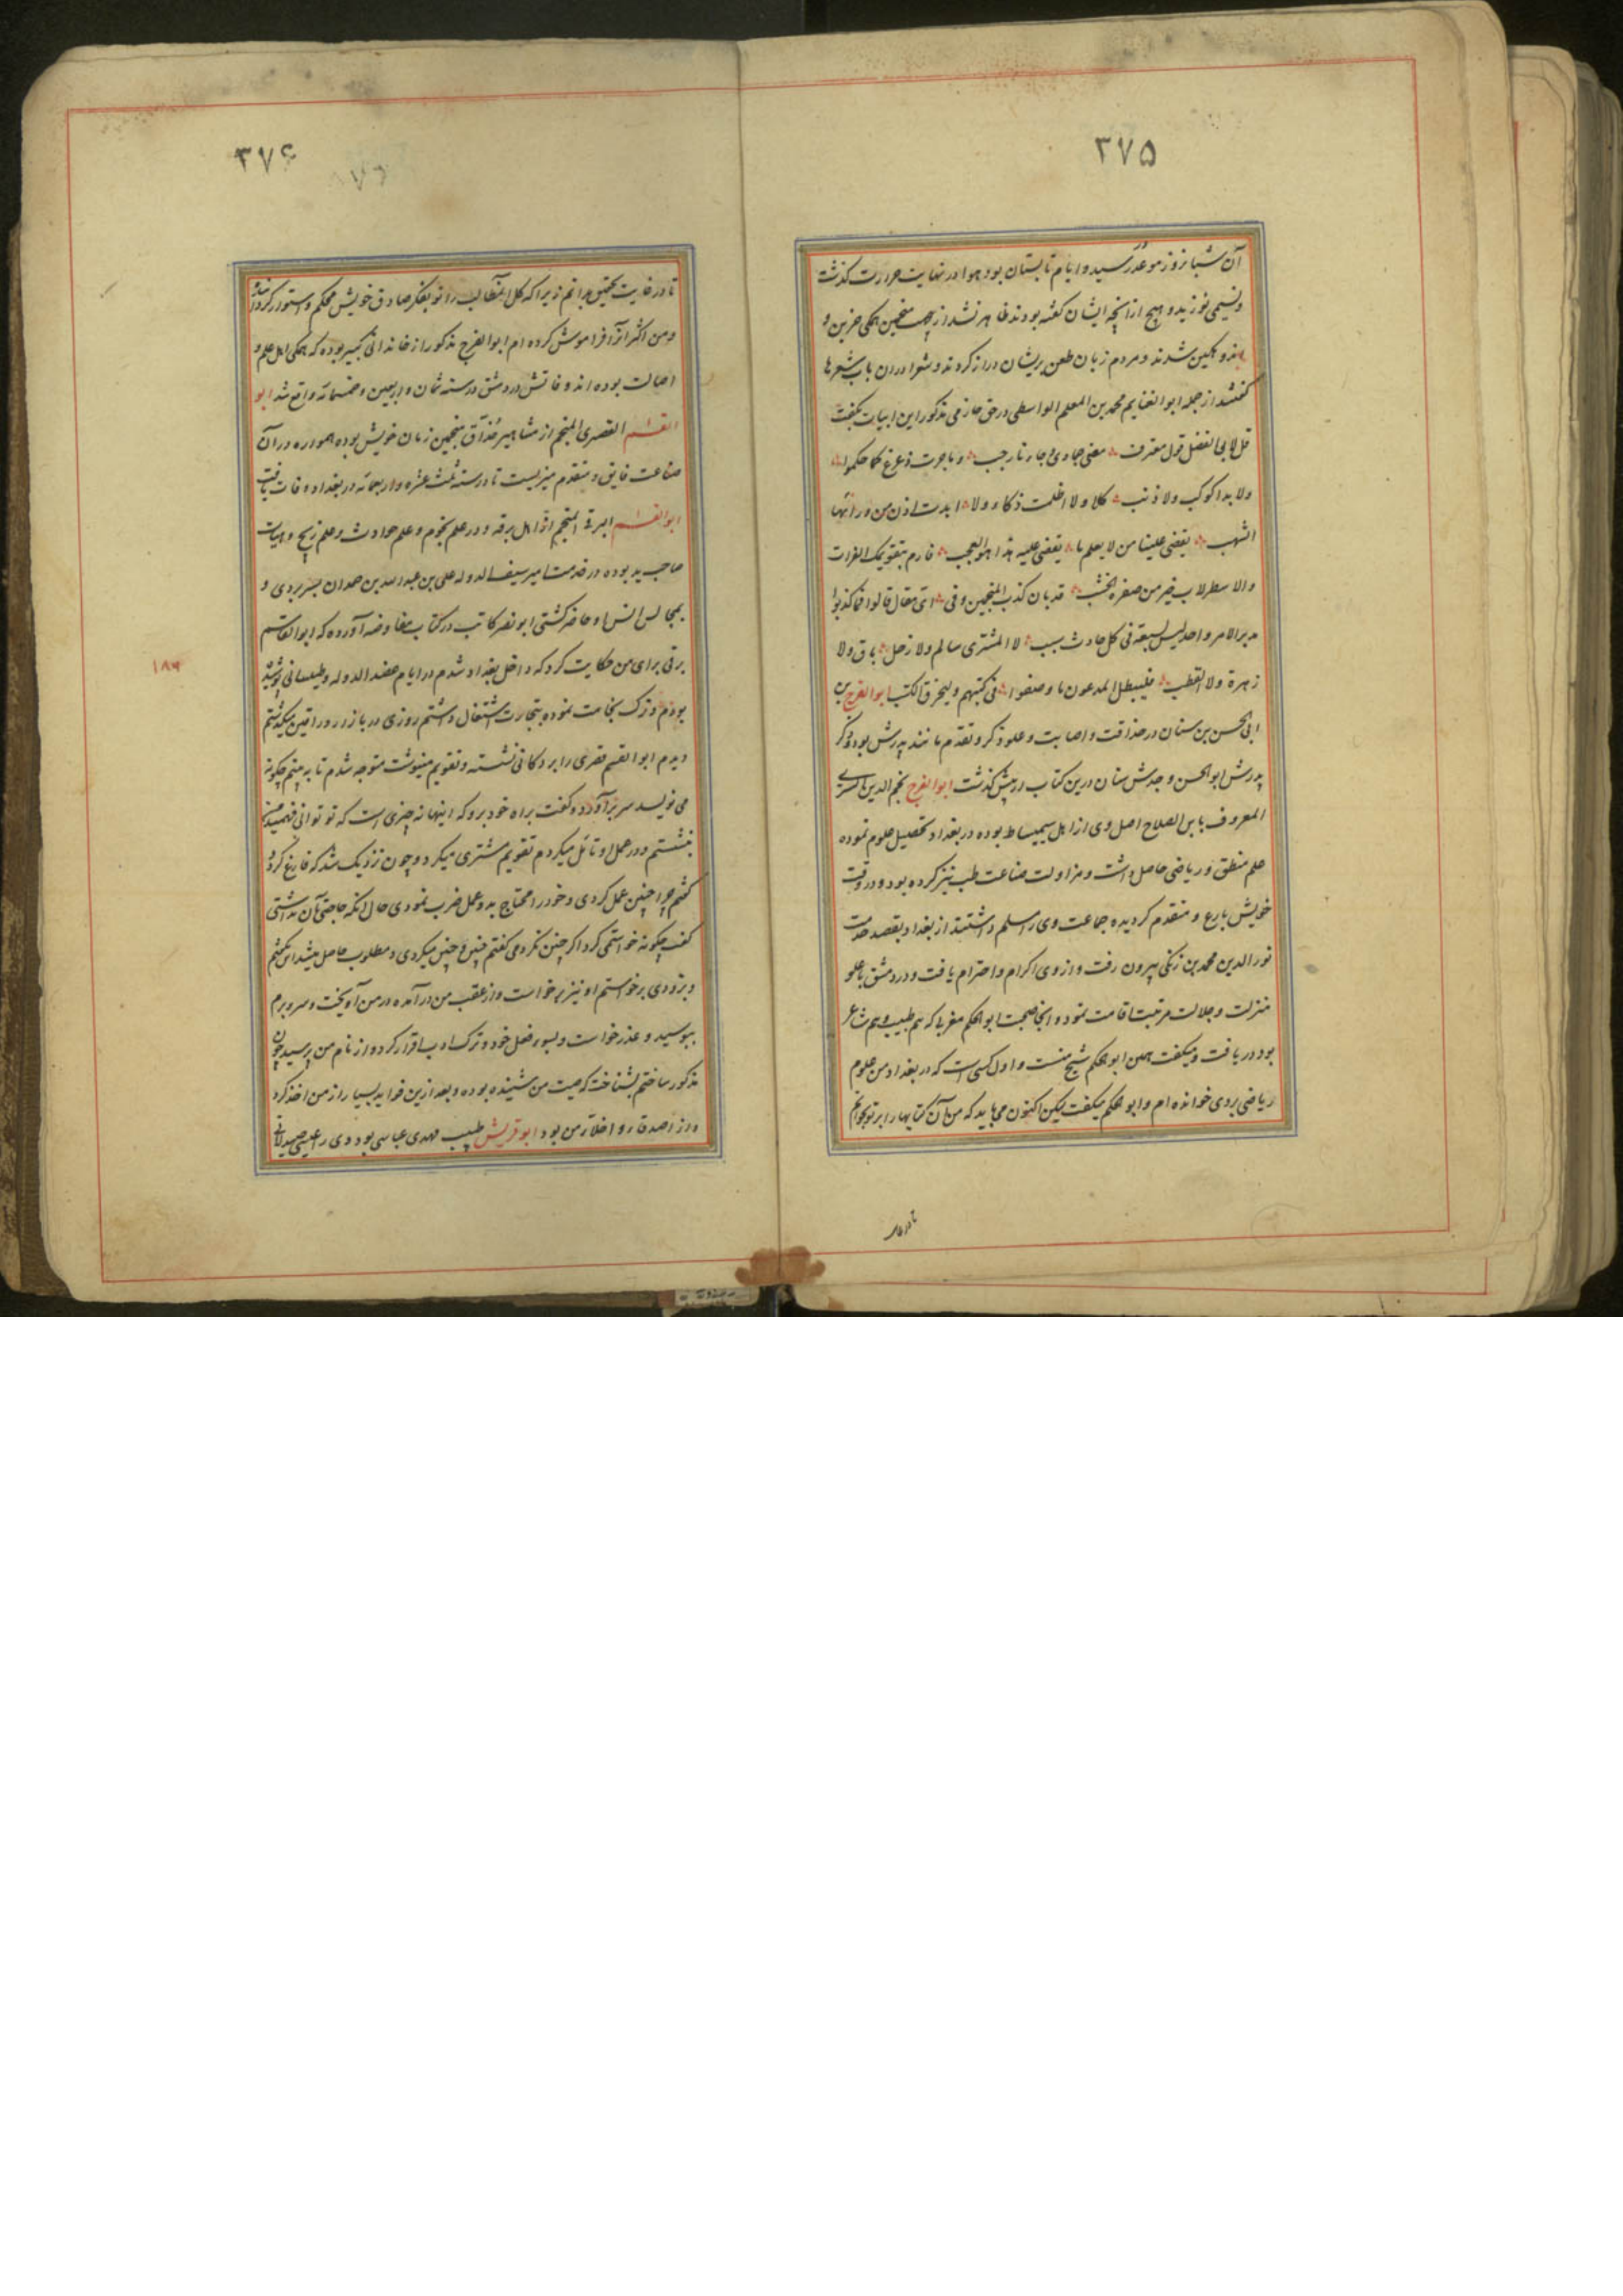 ۳۷۵
آن شبانروز موعد رسید و ایام تابستان بود هوا در نهایت حرارت گذشت
و نسیمی نوزید و هیچ از آنچه ایشان گفته بودند ظاهر نشد ازینجهت منجمین همگی حزین و
شدند و مردم زبان طعن بریشان دراز کردند و شعرا دران باب شعرها
گفتند از جمله ابوالغنایم محمد بن المعلم الواسطی در حق خازمی مذکور این ابیات بگفت
قل لابی الفضل قول معترف مضی جمادی و جاءنا رجب و ما جرت زعزع کما حکموا
ولا بدا کوکب ولا ذنب کلا ولا اظلمت ذکاء ولا ابدت اذن من ورائها
الشهب یقضی علینا من لا یعلم ما یقضی علیه هذا هو العجب فارم بتقویمک الفرات
والاسطرلاب خیر من صفره الخشب قد بان کذب المنجمین و فی ای مقال قالوا فما کذبوا
مدبر الامر واحد لیس لسبعة فی کل حادث سبب لا المشتری سالم ولا زحل باق ولا
زهرة ولا القطب فلیبطل المدعون ما وصفوا فی کتبهم ولیحرق الکتب ابوالفرج بن
ابی الحسن بن سنان در حذاقت و اصابت و علو ذکر و تقدم مانند پدرش بود و ذکر
پدرش ابوالحسن و جدش سنان درین کتاب در پیش گذشت ابوالفرج نجم الدین
المعروف بابن الصلاح اصل وی از اهل سمیساط بوده در بغداد تحصیل علوم نموده
علم منطق و ریاضی حاصل داشت و مزاولت صناعت طب نیز کرده بود و در وقت
خویش بارع و متقدم گردیده جماعت وی را مسلم داشتند از بغداد بقصد خدمت
نورالدین محمد بن زنگی بیرون رفت و از وی اکرام و احترام یافت و در دمشق با علو
منزلت و جلالت مرتبت اقامت نمود و آنجا صحبت ابوالحکم مغربی که هم طبیب و هم شاعر
بود دریافت و میگفت همین ابوالحکم شیخ منست و اول کسی است که در بغداد من علوم
ریاضی بروی خوانده ام و ابوالحکم میگفت لیکن اکنون می باید که من آن کتابها را بر تو بخوانم
تا در غا
۳۷۶
تا در غایت تحقیق بدانم زیرا که کل آنمطالب را تو بفکر صادق خویش محکم و استوار کرده
و من اکثر آنرا فراموش کرده ام ابوالفرج مذکور از خاندانی کبیر بوده که همگی اهل علم و
اصالت بوده اند وفاتش در دمشق در سنه ثمان و اربعین و خمسمائه واقع شد ابو
القاسم القصری المنجم از مشاهیر حذاق منجمین زمان خویش بوده همواره در آن
صناعت فایق و متقدم میزیست تا در سنه ثلث عشره و اربعمائه در بغداد وفات یافت
ابوالقاسم البرقی المنجم از اهل برقه و در علم نجوم و علم حوادث و علم زیج و هیات
صاحب ید بوده در خدمت امیر سیف الدوله علی بن عبدالله بن حمدان بسر بردی و
بمجالس انس او حاضر گشتی ابونصر کاتب در کتاب مفاوضه آورده که ابوالقاسم
برقی برای من حکایت کرد که داخل بغداد شدم در ایام عضدالدوله و طیلسانی پوشیده
بودم و ترک نجامت نموده بتجارت اشتغال داشتم روزی در بازار وراقین میگذشتم
دیدم ابوالقسم قصری را بر دکانی نشسته و تقویم مینوشت متوجه شدم تا به بینم چگونه
می نویسد سر برآورد و گفت براه خود برو که اینها نه چیزی است که تو توانی فهمید من
بنشستم و در عمل او تأمل میکردم تقویم مشتری میکرد و چون نزدیک شد که فارغ گردد
گفتم چرا چنین عمل کردی و خود را محتاج بدو عمل ضرب نمودی حال آنکه حاجتی بآن نداشتی
گفت چگونه خواستمی کرد اگر چنین نکردمی گفتم چنین و چنین میکردی و مطلوب حاصل میشد این بگفتم
و بزودی برخواستم او نیز برخواست و از عقب من در آمده در من آویخت و سر و برم
ببوسید و عذر خواست و بسوء فعل خود و ترک ادب اقرار کرد و از نام من پرسید چون
مذکور ساختم بشناخت که صیت من شنیده بوده و بعد ازین فواید بسیار از من اخذ کرد
و از اصدقا و اخلاء من بود ابوقریش طبیب مهدی عباسی بود وی را عیسی صیدلانی
۱۸۶